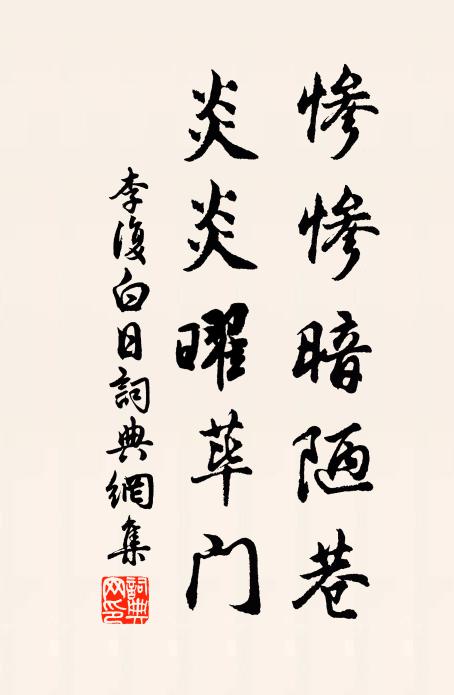 惨惨暗陋巷
炎炎曜荜门
李復白日詞典網集
詞典网印